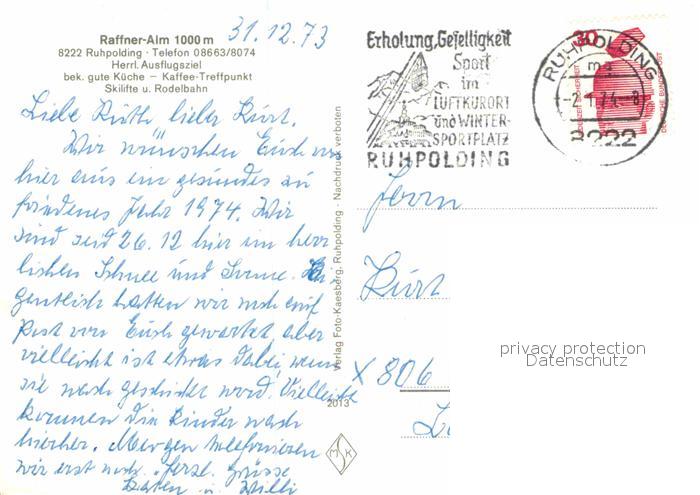 31.12.73
Raffner-Alm 1000 m
8222 Ruhpolding · Telefon 08663/8074
Herrl. Ausflugsziel
bek. gute Küche — Kaffee-Treffpunkt
Skilifte u. Rodelbahn
Liebe Ruth lieber Kurt.
Wir wünschen Euch von
hier aus ein gesundes zu
friedenes Jahr 1974. Wir
sind seid 26.12 hier im herr
lichen Schnee und Sonne. Ei
gentlich hatten wir noch auf
Post von Euch gewartet aber
vielleicht ist etwas dabei, wenn
sie nach geschickt wird. Vielleicht
kommen die Kinder noch
hierher. Morgen telefonieren
wir erst noch. Herzl. Grüsse
Käten u. Willi
Verlag Foto-Kaesberg, Ruhpolding · Nachdruck verboten
2013
MSK
Erholung, Geselligkeit
Sport
im
LUFTKURORT
und WINTER-
SPORTPLATZ
RUHPOLDING
30
RUHPOLDING
-2.1.74.-8
8222
DEUTSCHE BUNDESPOST
Herrn
Kurt
X 806
privacy protection
Datenschutz